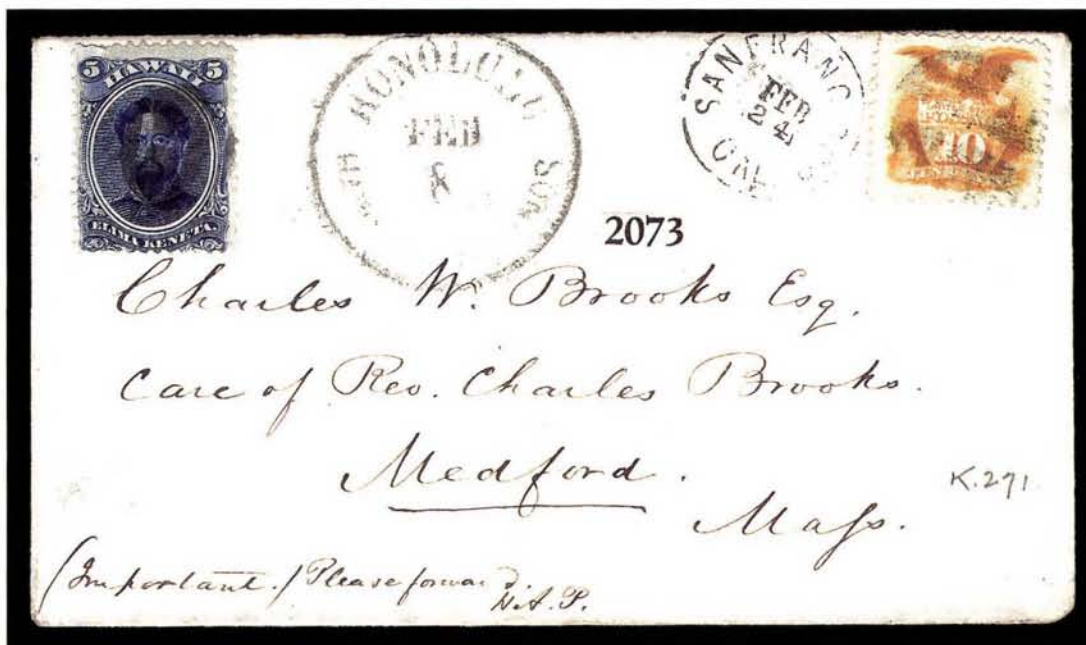 5 HAWAII 5
ELIMA KENETA
HONOLULU
FEB
8
SAN FRANC
FEB
24
CAL
10
2073
Charles W. Brooks Esq.
Care of Rev. Charles Brooks.
Medford.
Mass.
K.291
(Important.) Please forward
H.A.P.